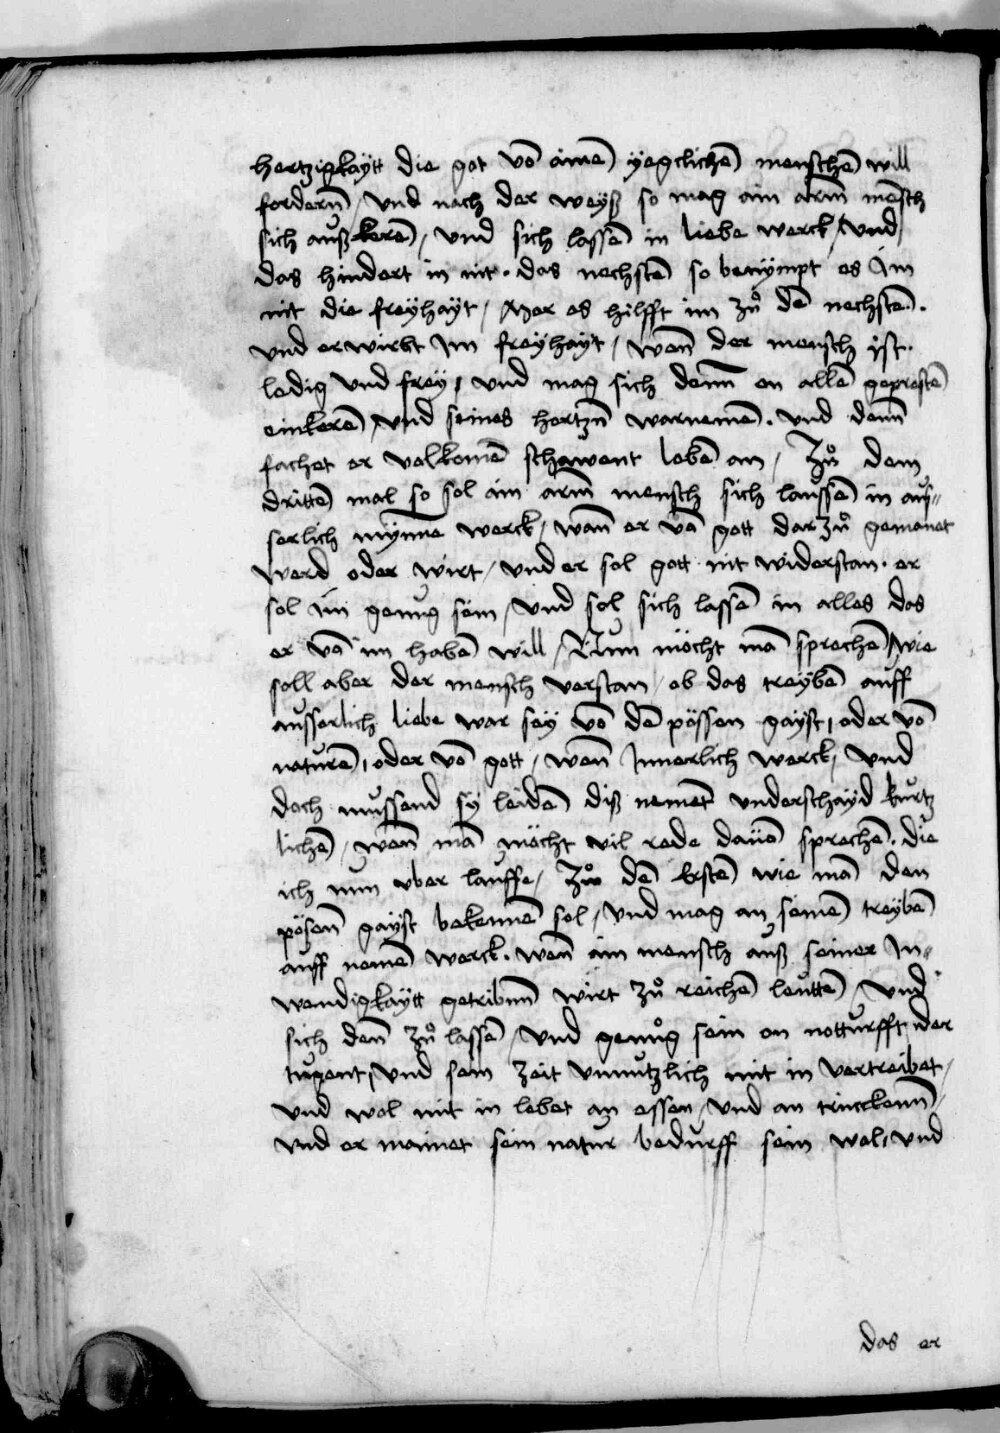 hertzigkaytt die got vō aīmē yegclichē menschē will
fordern̄ / vnd nach der weyß so mag ain arm̄ mēsch
sich außkerē / vnd sich lassē in liebe werck / vnd
das hindert in nit . das nechstē so benympt es Im
nit die freyhayt / Mer es hilfft im zů dē nechstē .
vnd erwirbt Im freyhayt / wen̄ der mensch ist .
ledig vnd frey / vnd mag sich denn̄ on allē geprestē
einkerē / vnd seines hertzn̄ warnemē . vnd denn̄
fachet er volkomē schawent lebē an / Zů dem
drittē mal so sol ain arm̄ mensch sich laussē in aus„
serlich mynne werck / wan̄ er vō gott dar zů gemanet
werd oder wirt / vnd er sol gott nit widerstan . er
sol im genug sein / vnd sol sich lassē in alles das
er vō im habē will / Nun möcht mā sprechē / wie
soll aber der mensch verstan / ob das treybē auff
ausserlich liebe war sey vō dē pössen gayst / oder vō
naturē / oder vō gott / wan̄ Innerlich werck / vnd
doch mussend sy leidē diß nemēt vnderschayd kurtz
lichē / wan̄ mā möcht vil rede dauō sprechē . die
ich nun vber lauffe / Zů dē Erstē wie mā den
pösen̄ gayst bekennē sol / vnd mag an seinē treybē
auff nemē werck . wen̄ ain mensch auß seiner In„
wendigkaytt getribnn̄ wirt zů reichē leuttē / vnd
sich den̄ zů lassē / vnd genůg sein on notturfft der
tugent / vnd sein zeit vnnutzlich mit in vertreibet /
vnd wol mit in lebet an essen / vnd an trinckenn̄ /
vnd er mainet sein natur bedurff sein wol / vnd
das er